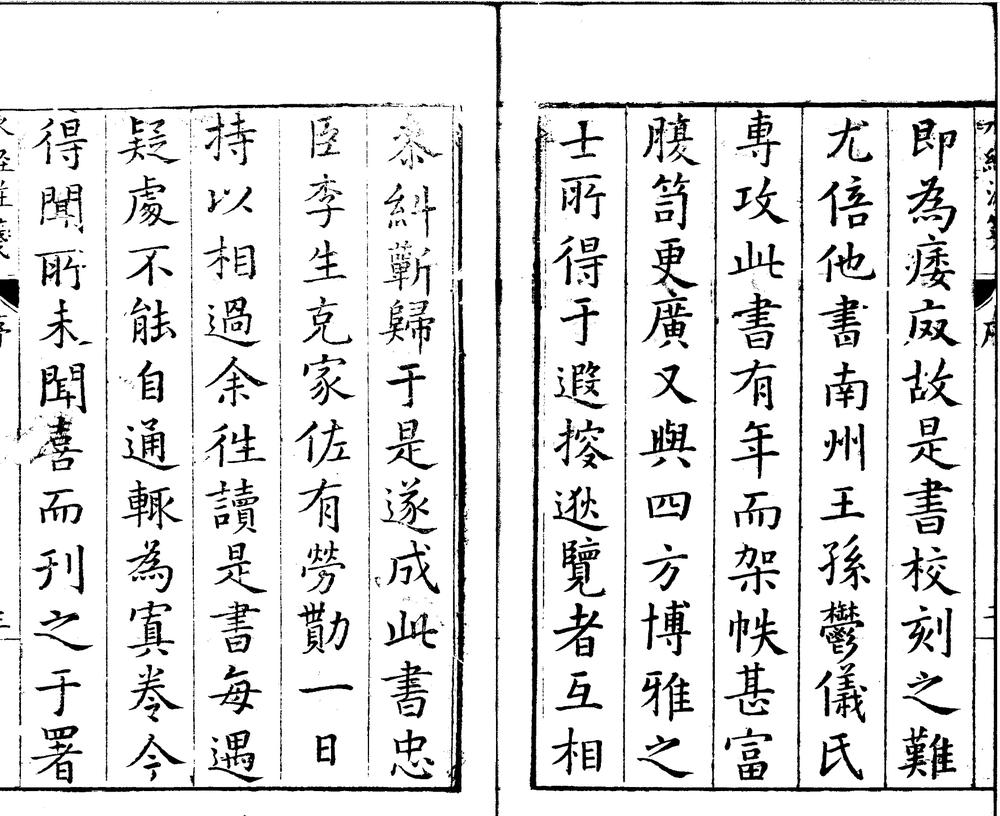 水經注箋 序 二
即為痿故是書校刻之難
尤倍他書南州王孫鬱儀氏
專攻此書有年而架帙甚富
腹笥更廣又與四方博雅之
士所得于遐搜逖覽者互相
叅糾蘄歸于是遂成此書忠
臣李生克家佐有勞勩一日
持以相過余徃讀是書每遇
疑處不能自通輒為寘卷今
得聞所未聞喜而刊之于署
水經注箋 序 三